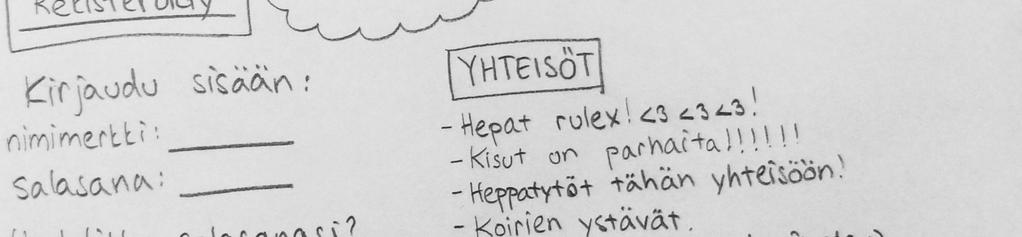 Rekisteröidy
Kirjaudu sisään:
nimimerkki:
salasana:
YHTEISÖT
- Hepat rulex! <3 <3 <3!
- Kisut on parhaita!!!!!!!
- Heppatytöt tähän yhteisöön!
- Koirien ystävät.